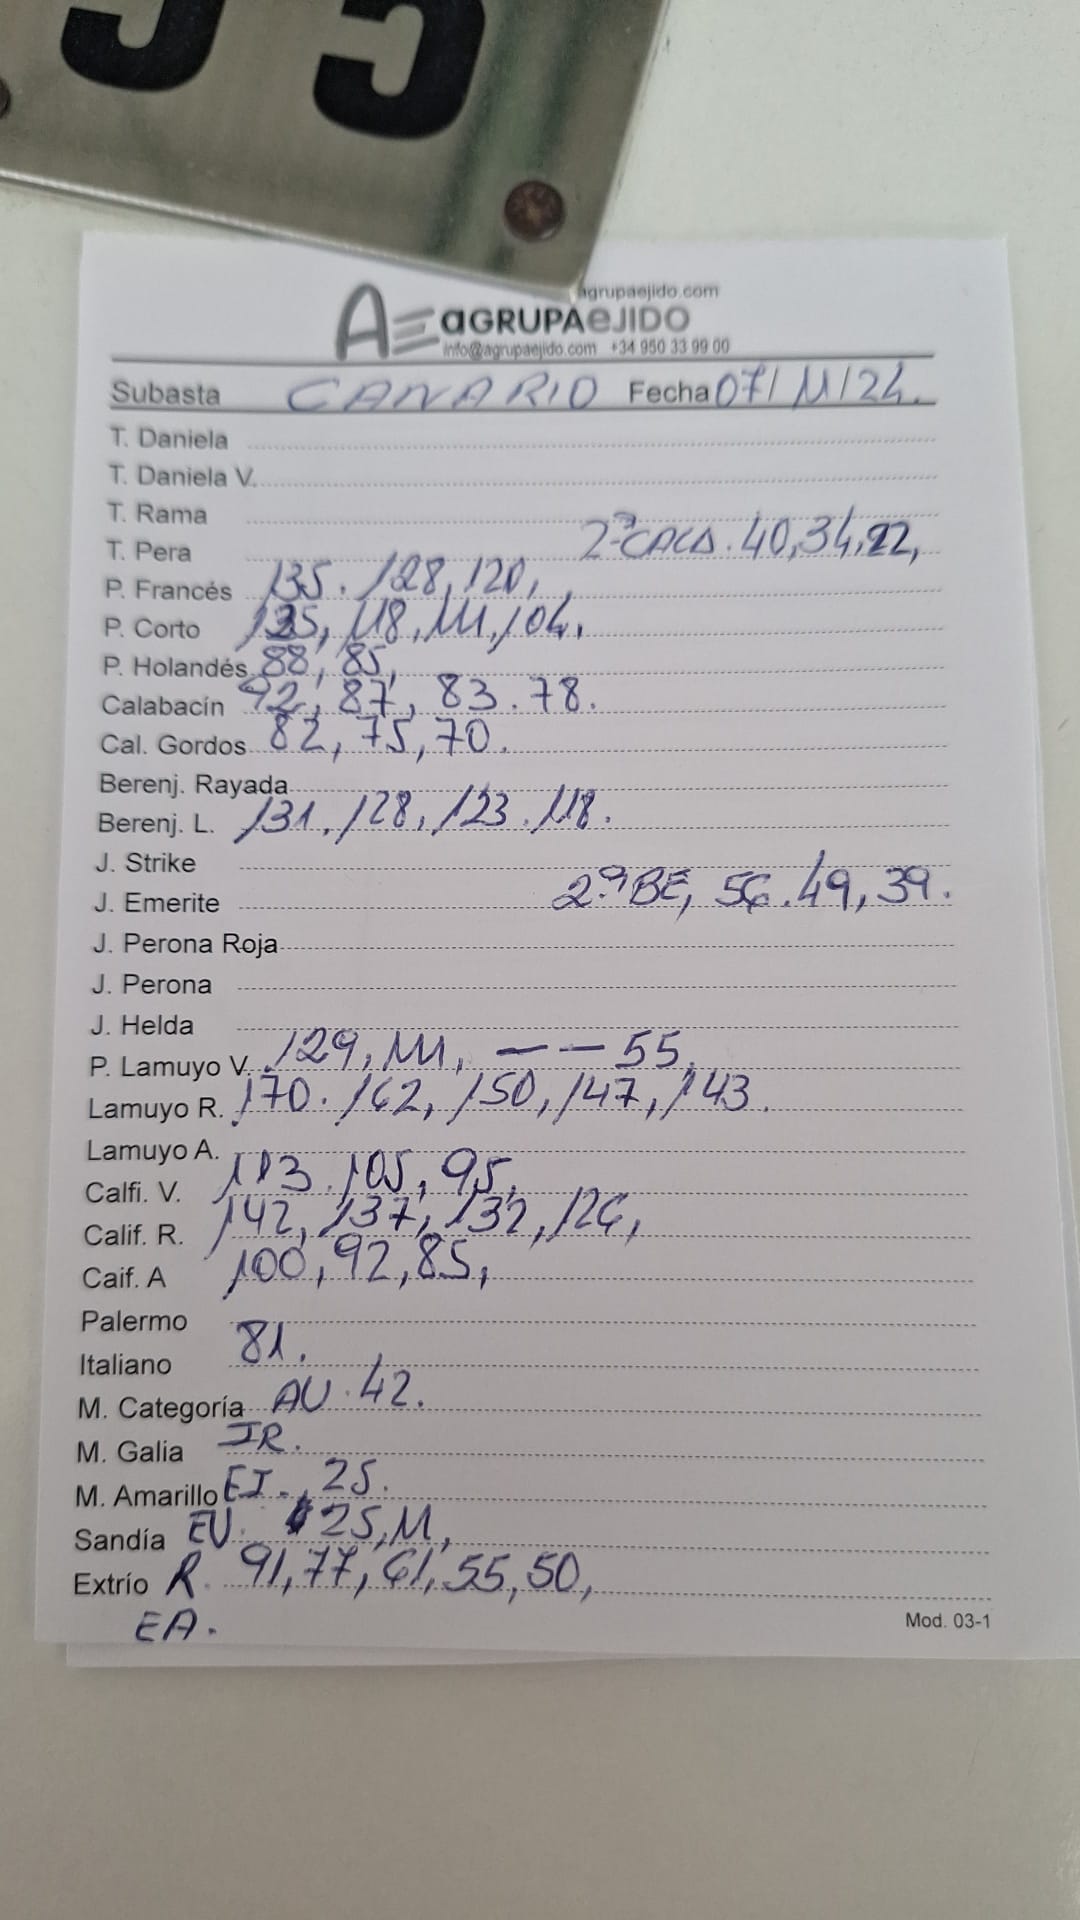 35
agrupaejido.com
AE aGRUPAeJIDO
info@agrupaejido.com +34 950 33 99 00
Subasta CANARIO Fecha 07/11/24.
T. Daniela
T. Daniela V.
T. Rama
T. Pera 2ª CACA. 40, 34, 22,
P. Francés 135. 128, 120,
P. Corto 125, 118, 111, 104.
P. Holandés 88, 85,
Calabacín 92, 87, 83. 78.
Cal. Gordos 82, 75, 70.
Berenj. Rayada
Berenj. L. 131, 128, 123. 118.
J. Strike
J. Emerite 2ª BE, 56. 49, 39.
J. Perona Roja
J. Perona
J. Helda
P. Lamuyo V. 129, 111, — — 55,
Lamuyo R. 170. 162, 150, 147, 143.
Lamuyo A.
Calfi. V. 113. 105, 95,
Calif. R. 142, 137, 132, 126,
Caif. A 100, 92, 85,
Palermo
Italiano 81.
M. Categoría AU. 42.
M. Galia IR.
M. Amarillo EI., 25.
Sandía EU. 25, 11,
Extrío R. 91, 77, 61, 55, 50,
EA.
Mod. 03-1